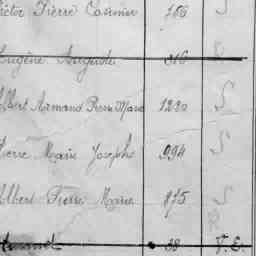 Victor Pierre Casimir 166 S
Eugène Auguste 316
Albert Armand Pierre Marie 1220 S
Pierre Marie Joseph 994 S
Albert Pierre Marie 875 S
38 V. E.